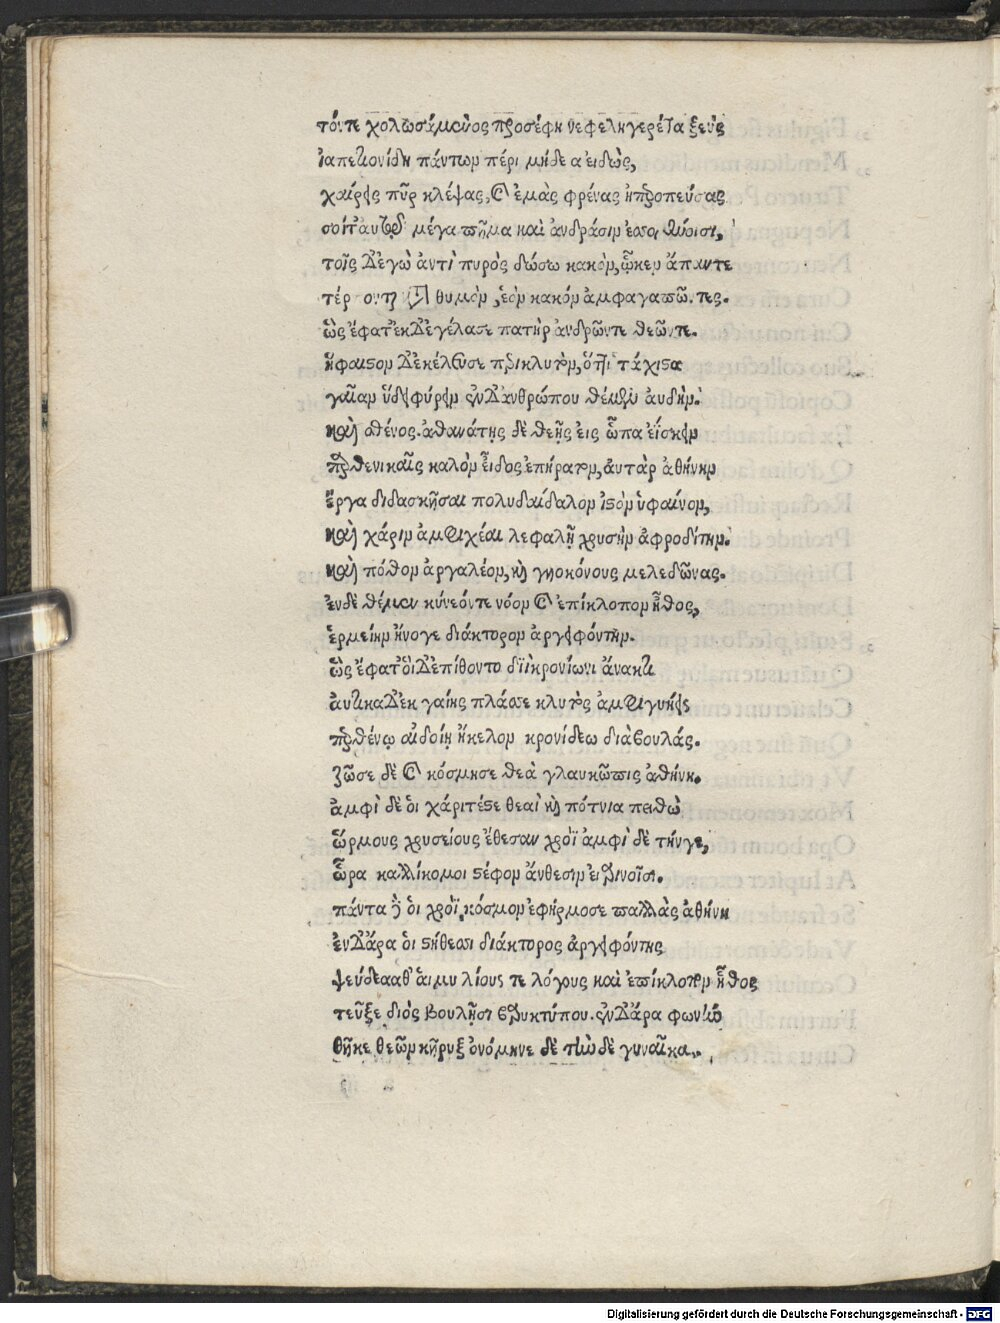 τόνπε χολωσάμενος προσέφη νεφεληγερέτα ζεύς
ἰαπετιονίδη πάντων πέρι μήδεα εἰδὼς,
χαίρεις πῦρ κλέψας, καὶ ἐμὰς φρένας ἠπεροπεύσας
σοίτ' αὐτῷ μέγα πῆμα καὶ ἀνδράσιν ἐσσομένοισι,
τοῖς δ' ἐγὼ ἀντὶ πυρὸς δώσω κακὸν, ᾧκεν ἅπαντε
τέρ θυμὸν, ἑὸν κακὸν ἀμφαγαπῶντες.
ὣς ἔφατ' ἐκ δ' ἐγέλασε πατὴρ ἀνδρῶντε θεῶντε.
ἥφαιστον δ' ἐκέλευσε περικλυτὸν, ὅττι τάχιστα
γαῖαν ὕδει φύρειν ἐν δ' ἀνθρώπου θέμεν αὐδὴν.
καὶ σθένος. ἀθανάτης δὲ θεῆς εἰς ὦπα ἐΐσκειν
παρθενικαῖς καλὸν εἶδος ἐπήρατον, αὐτὰρ ἀθήνην
ἔργα διδασκῆσαι πολυδαίδαλον ἱστὸν ὑφαίνον,
καὶ χάριν ἀμφιχέαι κεφαλῇ χρυσὴν ἀφροδίτην.
καὶ πόθον ἀργαλέον, καὶ γυιοκόνους μελεδῶνας.
ἐνδὲ θέμεν κύνεόντε νόον καὶ ἐπίκλοπον ἦθος,
ἑρμείην ἤνογε διάκτορον ἀργειφόντην.
ὣς ἔφατ' οἱ δ' ἐπίθοντο διῒ κρονίωνι ἄνακτι
αὐτίκα δ' ἐκ γαίης πλάσσε κλυτὸς ἀμφιγυήεις
παρθένῳ αἰδοίῃ ἴκελον κρονίδεω διὰ βουλάς.
ζῶσε δὲ καὶ κόσμησε θεὰ γλαυκῶπις ἀθήνη.
ἀμφὶ δὲ οἱ χάριτέστε θεαὶ καὶ πότνια πειθὼ
ὅρμους χρυσείους ἔθεσαν χροῒ ἀμφὶ δὲ τήνγε,
ὧρα καλλίκομοι στέφον ἄνθεσιν εἰαρινοῖσι.
πάντα δέ οἱ χροῒ κόσμον ἐφήρμοσε παλλὰς ἀθήνη
ἐν δ' ἄρα οἱ στήθεσσι διάκτορος ἀργειφόντης
ψεύδεαθ' αἱμυλίους τε λόγους καὶ ἐπίκλοπον ἦθος
τεῦξε διὸς βουλῇσι βαρυκτύπου. ἐν δ' ἄρα φωνὴν
θῆκε θεῶν κῆρυξ ὀνόμηνε δὲ τήνδε γυναῖκα.
Digitalisierung gefördert durch die Deutsche Forschungsgemeinschaft - DFG